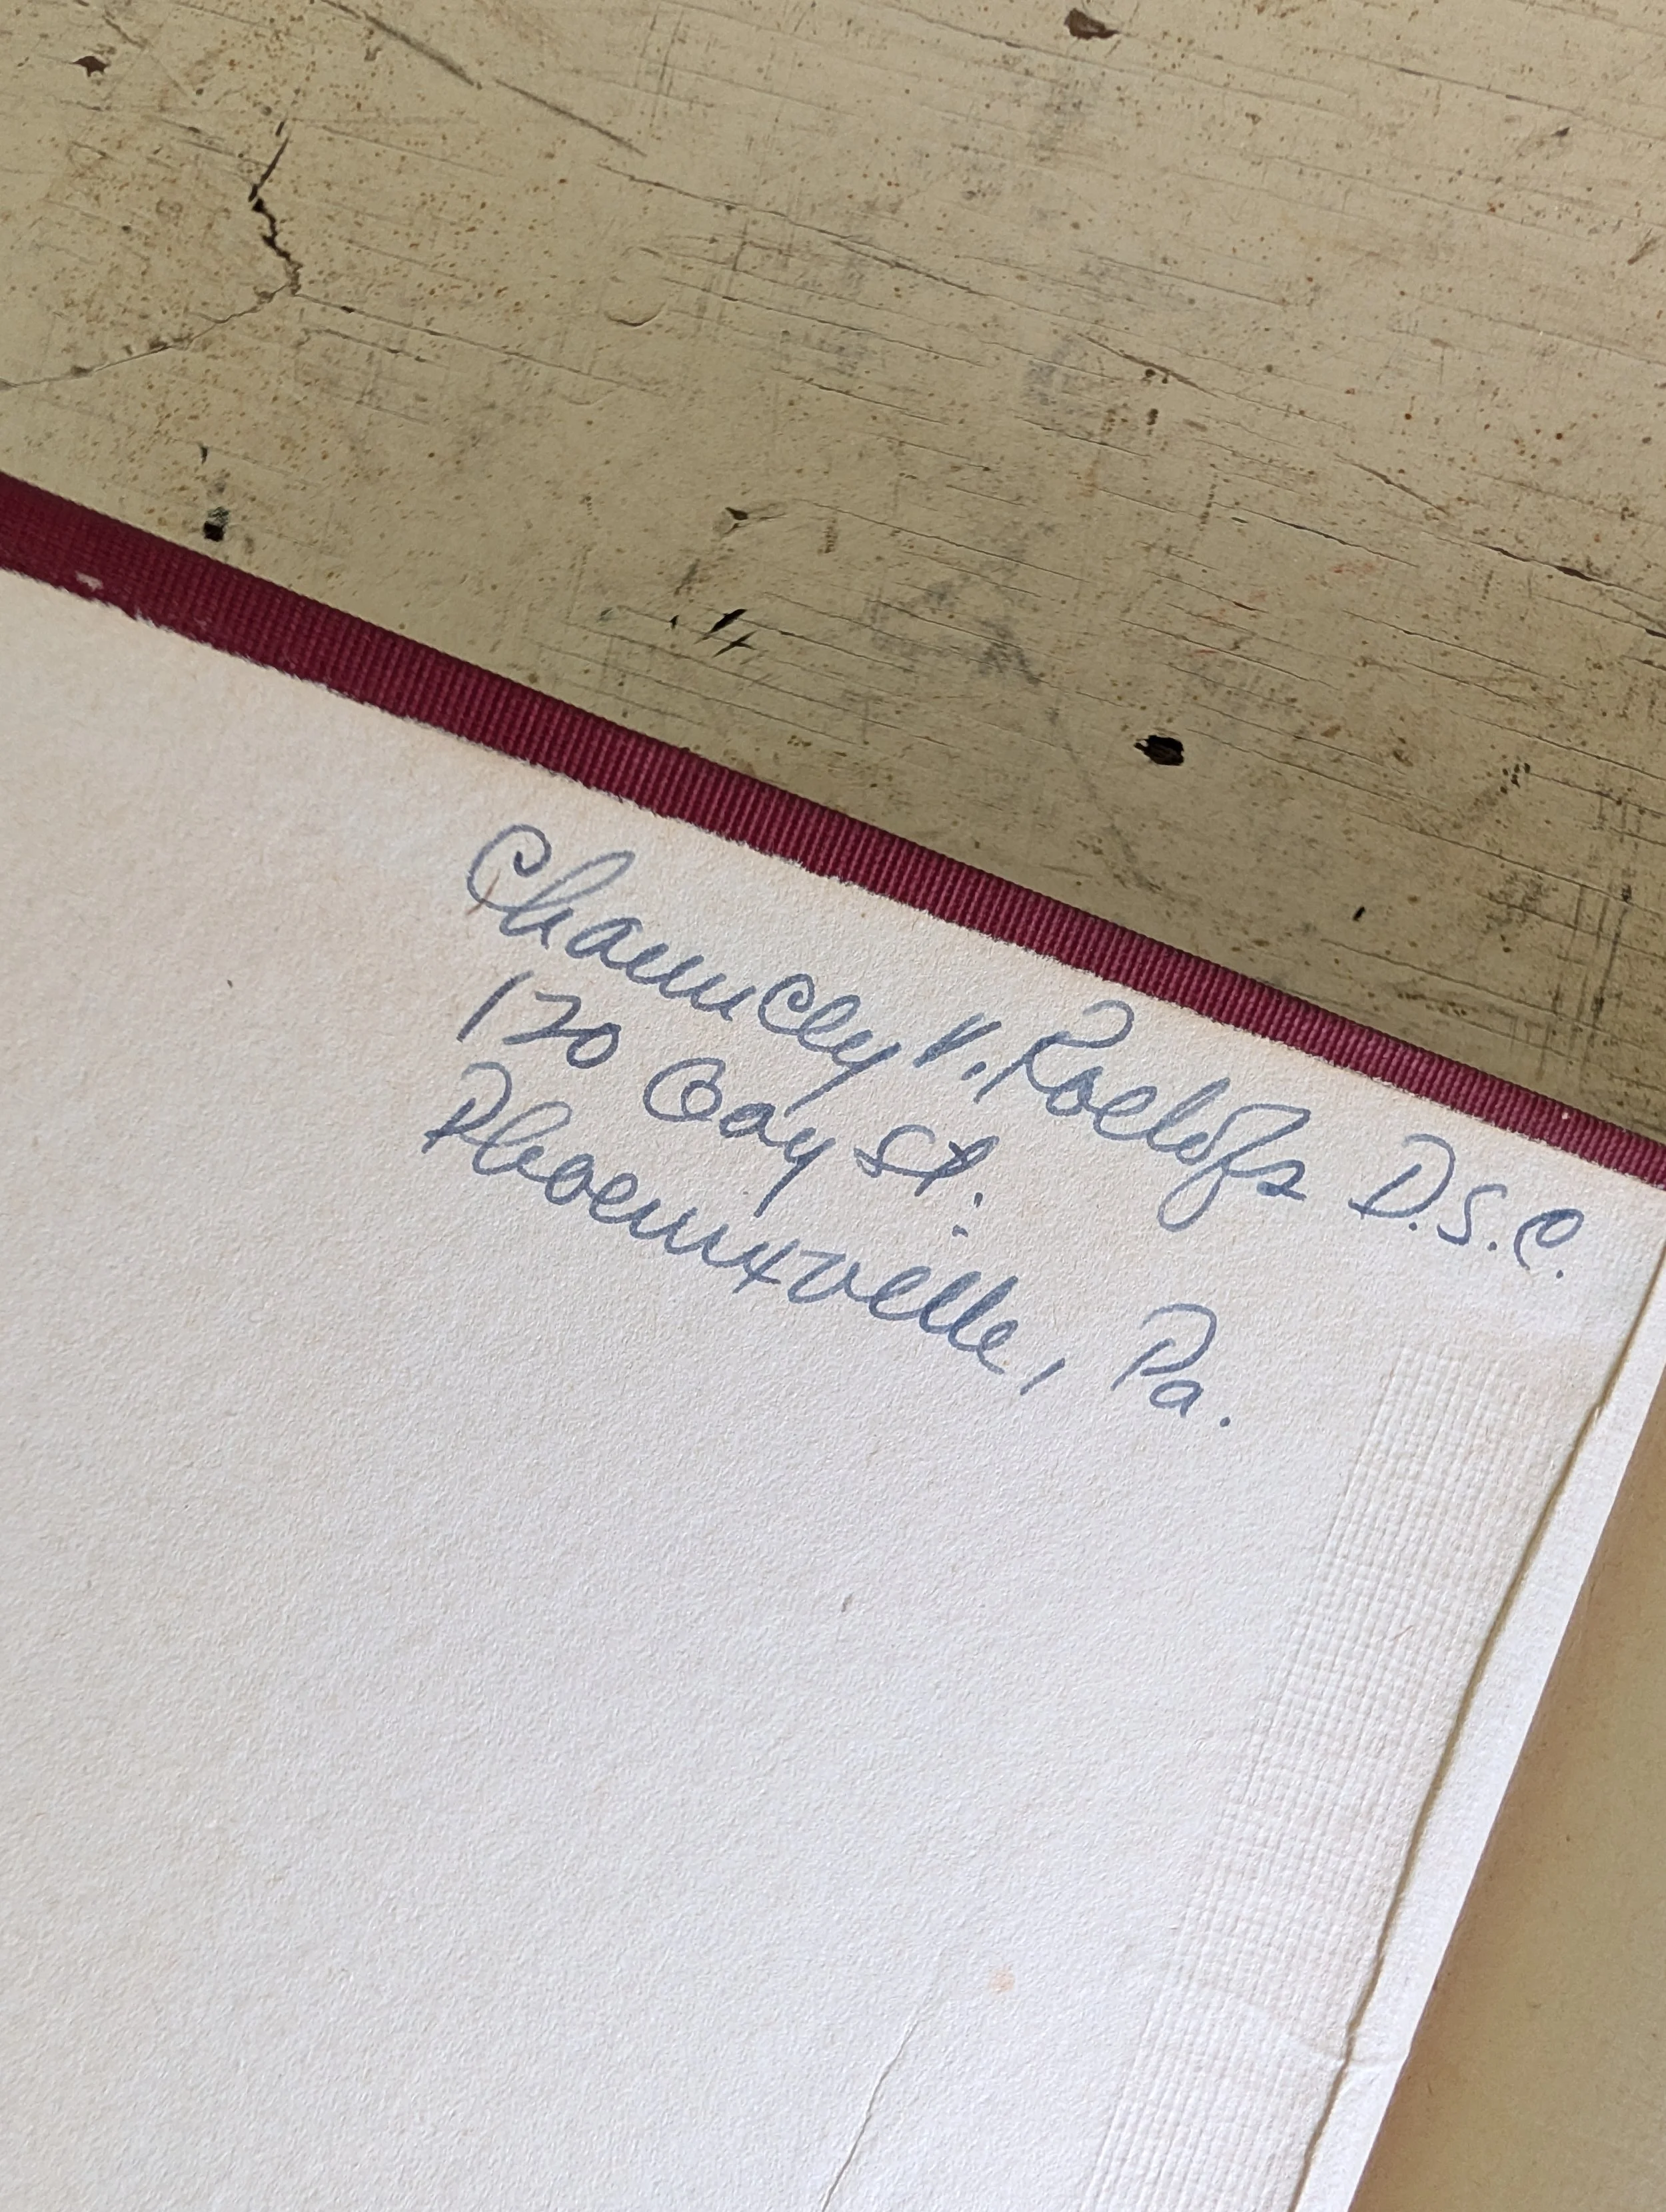 Chauncey V. Roelofs D.S.C.
170 Gay St.
Phoenixville, Pa.